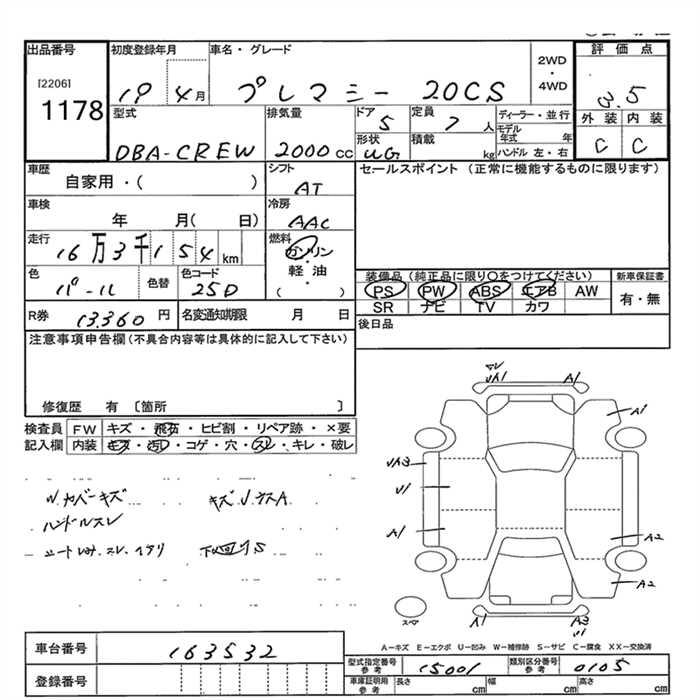 出品番号 初度登録年月 車名・グレード 評価点
[2206] 2WD
1178 19 4月 プレマシー 20CS ・4WD 3.5
型式 排気量 ドア 5 定員 7人 ディーラー・並行 外装 内装
DBA-CREW 2000cc 形状 UG 積載 kg モデル年式 年 ハンドル 左・右 C C
車歴 シフト セールスポイント (正常に機能するものに限ります)
自家用・( ) AT
車検 冷房
年 月( 日) AAC
走行 燃料
16万3千154km ガソリン・軽油・( )
色 色替 色コード 装備品(純正品に限り○をつけてください) 新車保証書
パール 25D PS PW ABS エアB AW 有・無
SR ナビ TV カワ
R券 13,360円 名変通知期限 月 日 後日品
注意事項申告欄(不具合内容等は具体的に記入して下さい)
修復歴 有 〔箇所 〕
検査員 FW キズ・飛石・ヒビ割・リペア跡・×要
記入欄 内装 キズ・汚れ・コゲ・穴・スレ・キレ・破レ
UA1 A1
A1
UA3
U1
A1
A2
A2
A1 A3
U1
Wカバーキズ キズUタスA
ハンドルスレ
シートしみ、スレ、ヘタリ 下回りS
スペア
A-キズ E-エクボ U-凹み W-補修跡 S-サビ C-腐食 XX-交換済
車台番号 163532
登録番号
型式指定番号 参考 15001 類別区分番号 参考 0105
車庫証明用 参考 長さ cm 幅 cm 高さ cm